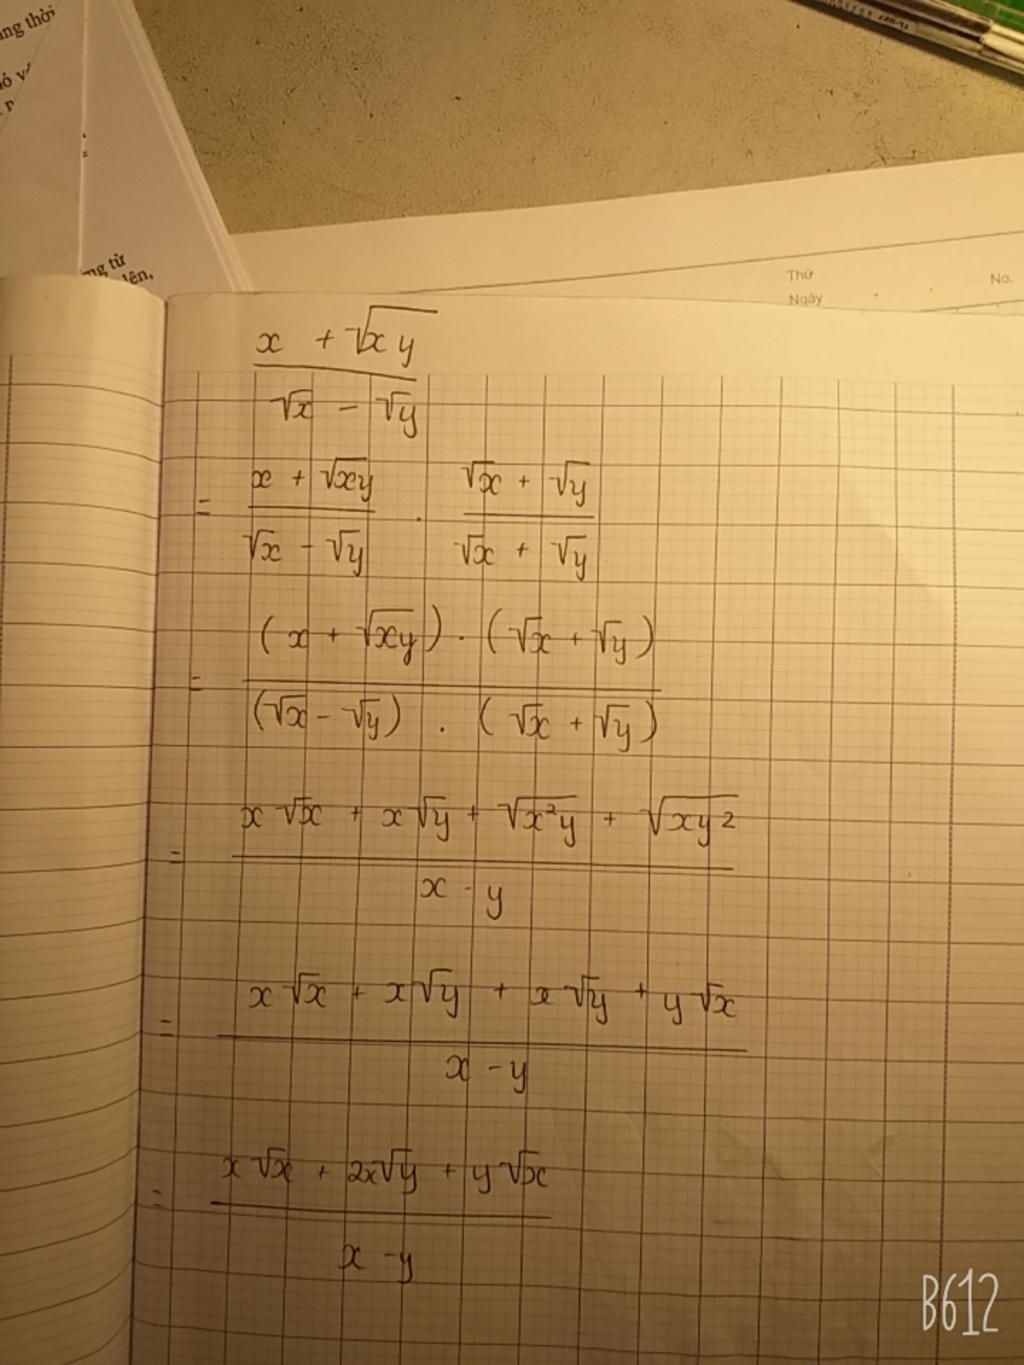 ng thời
ng từ
lên,
Thứ
No.
Ngày
x + √xy
√x - √y
= x + √xy / √x - √y . √x + √y / √x + √y
= (x + √xy) . (√x + √y) / (√x - √y) . (√x + √y)
= x√x + x√y + √x²y + √xy² / x - y
= x√x + x√y + x√y + y√x / x - y
= x√x + 2x√y + y√x / x - y
B612